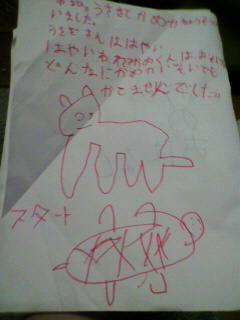 うさぎとかめが
いました。
うさぎさんははやい
はやい かめくんは、おそい
どんなにかめがいそいでも
かてませんでした。
スタート